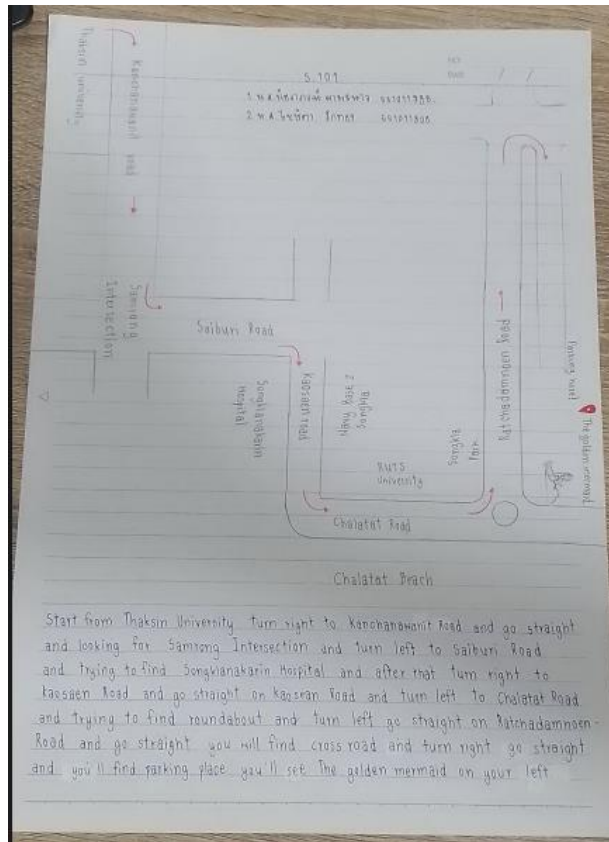 5.101
Thaksin university
Kanchanawanid road
Samrong
Intersection
Saiburi Road
Songklanakarin
Hospital
Kaosaen road
Navy Base 2
Songkla
RUTS
University
Songkla
Park
Ratchadamnoen Road
Parking
The golden mermaid
Chalatat Road
Chalatat Beach
Start from Thaksin University turn right to Kanchanawanit Road and go straight
and looking for Samrong Intersection and turn left to Saiburi Road
and trying to find Songklanakarin Hospital and after that turn right to
kaosaen Road and go straight on kaosean Road and turn left to Chalatat Road
and trying to find roundabout and turn left go straight on Ratchadamnoen-
Road and go straight you will find cross road and turn right go straight
and you'll find parking place you'll see The golden mermaid on your left